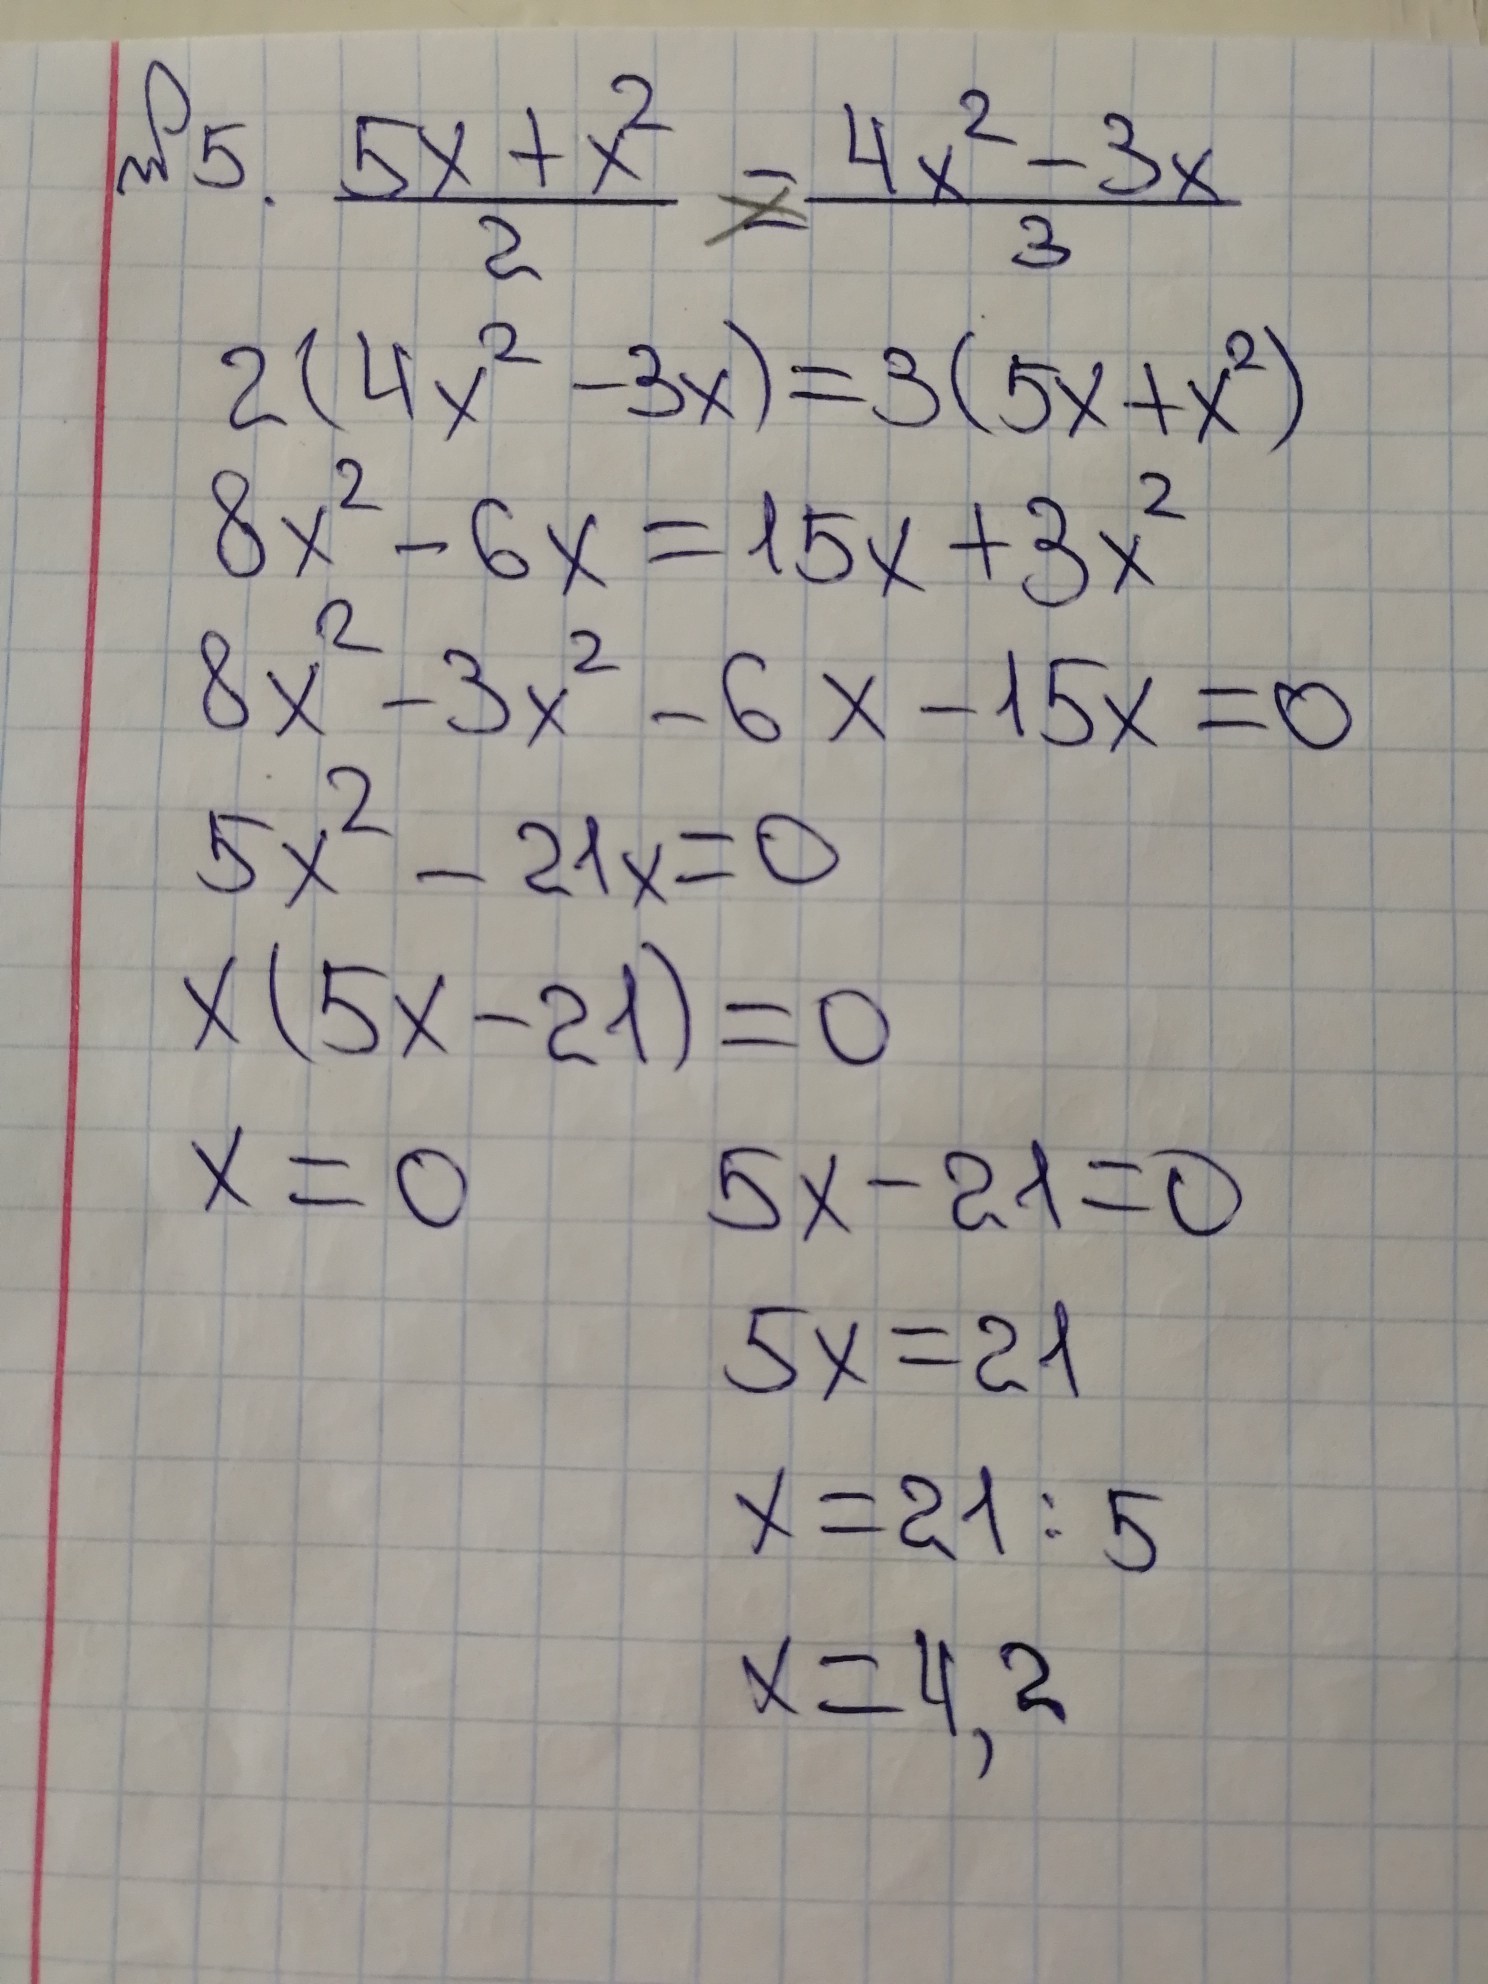 №5. (5x + x²)/2 = (4x² - 3x)/3
2(4x² - 3x) = 3(5x + x²)
8x² - 6x = 15x + 3x²
8x² - 3x² - 6x - 15x = 0
5x² - 21x = 0
x(5x - 21) = 0
x = 0 5x - 21 = 0
5x = 21
x = 21 : 5
x = 4,2